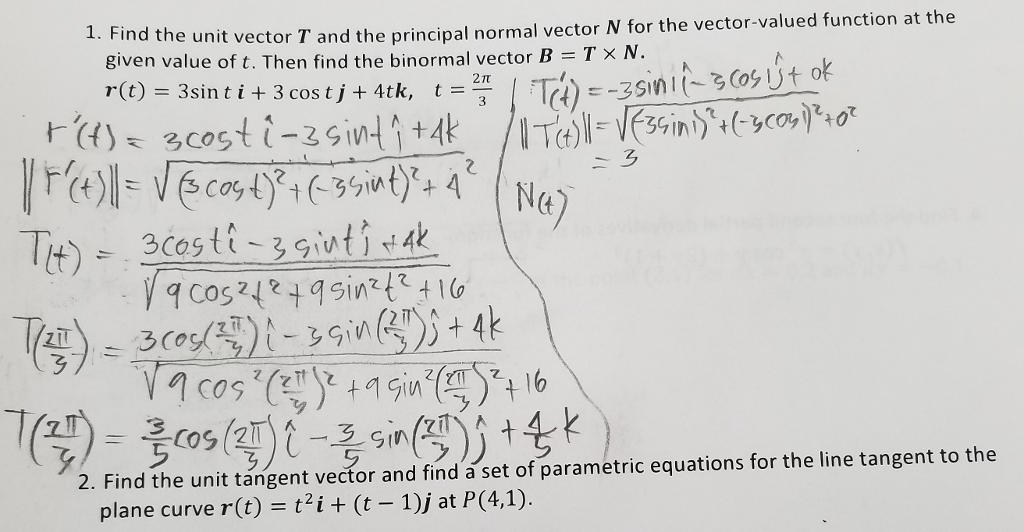 1. Find the unit vector T and the principal normal vector N for the vector-valued function at the
given value of t. Then find the binormal vector B = T × N.
r(t) = 3sin t i + 3 cos t j + 4tk, t = 2π/3
r'(t) = 3cost î - 3sint ĵ + 4k
||r'(t)|| = √(3cost)² + (-3sint)² + 4²
T(t) = 3costî - 3sintĵ + 4k / √9cos²t² + 9sin²t² + 16
T(2π/3) = 3cos(2π/3)î - 3sin(2π/3)ĵ + 4k / √9cos²(2π/3)² + 9sin²(2π/3)² + 16
T(2π/3) = 3/5 cos(2π/3)î - 3/5 sin(2π/3)ĵ + 4/5 k
T'(t) = -3sin1î - 3cos1ĵ + 0k
||T'(t)|| = √(-3sin1)² + (-3cos1)² + 0²
= 3
N(t)
2. Find the unit tangent vector and find a set of parametric equations for the line tangent to the
plane curve r(t) = t²i + (t − 1)j at P(4,1).